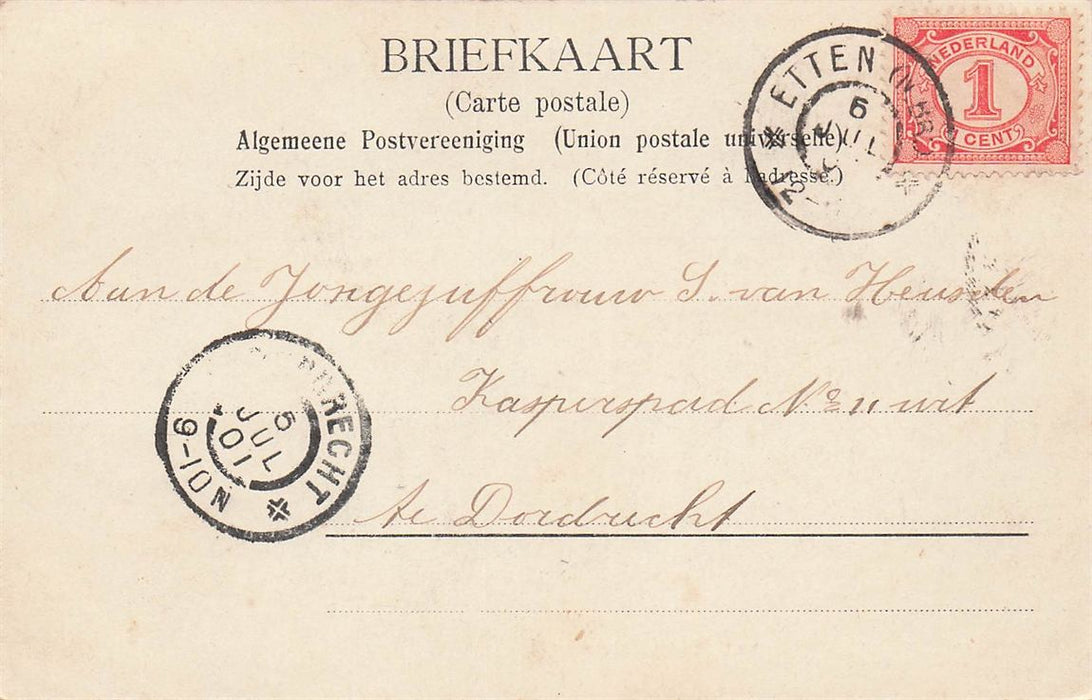 BRIEFKAART
(Carte postale)
Algemeene Postvereeniging (Union postale universelle).
Zijde voor het adres bestemd. (Côté réservé à l'adresse.)
NEDERLAND
1
(1 CENT)
ETTEN (N.BR.)
JUL
Aan de Jongejuffrouw S. van Heusden
Kasperspad No 11 wit
te Dordrecht
DORDRECHT
5
JUL
01
9-10N